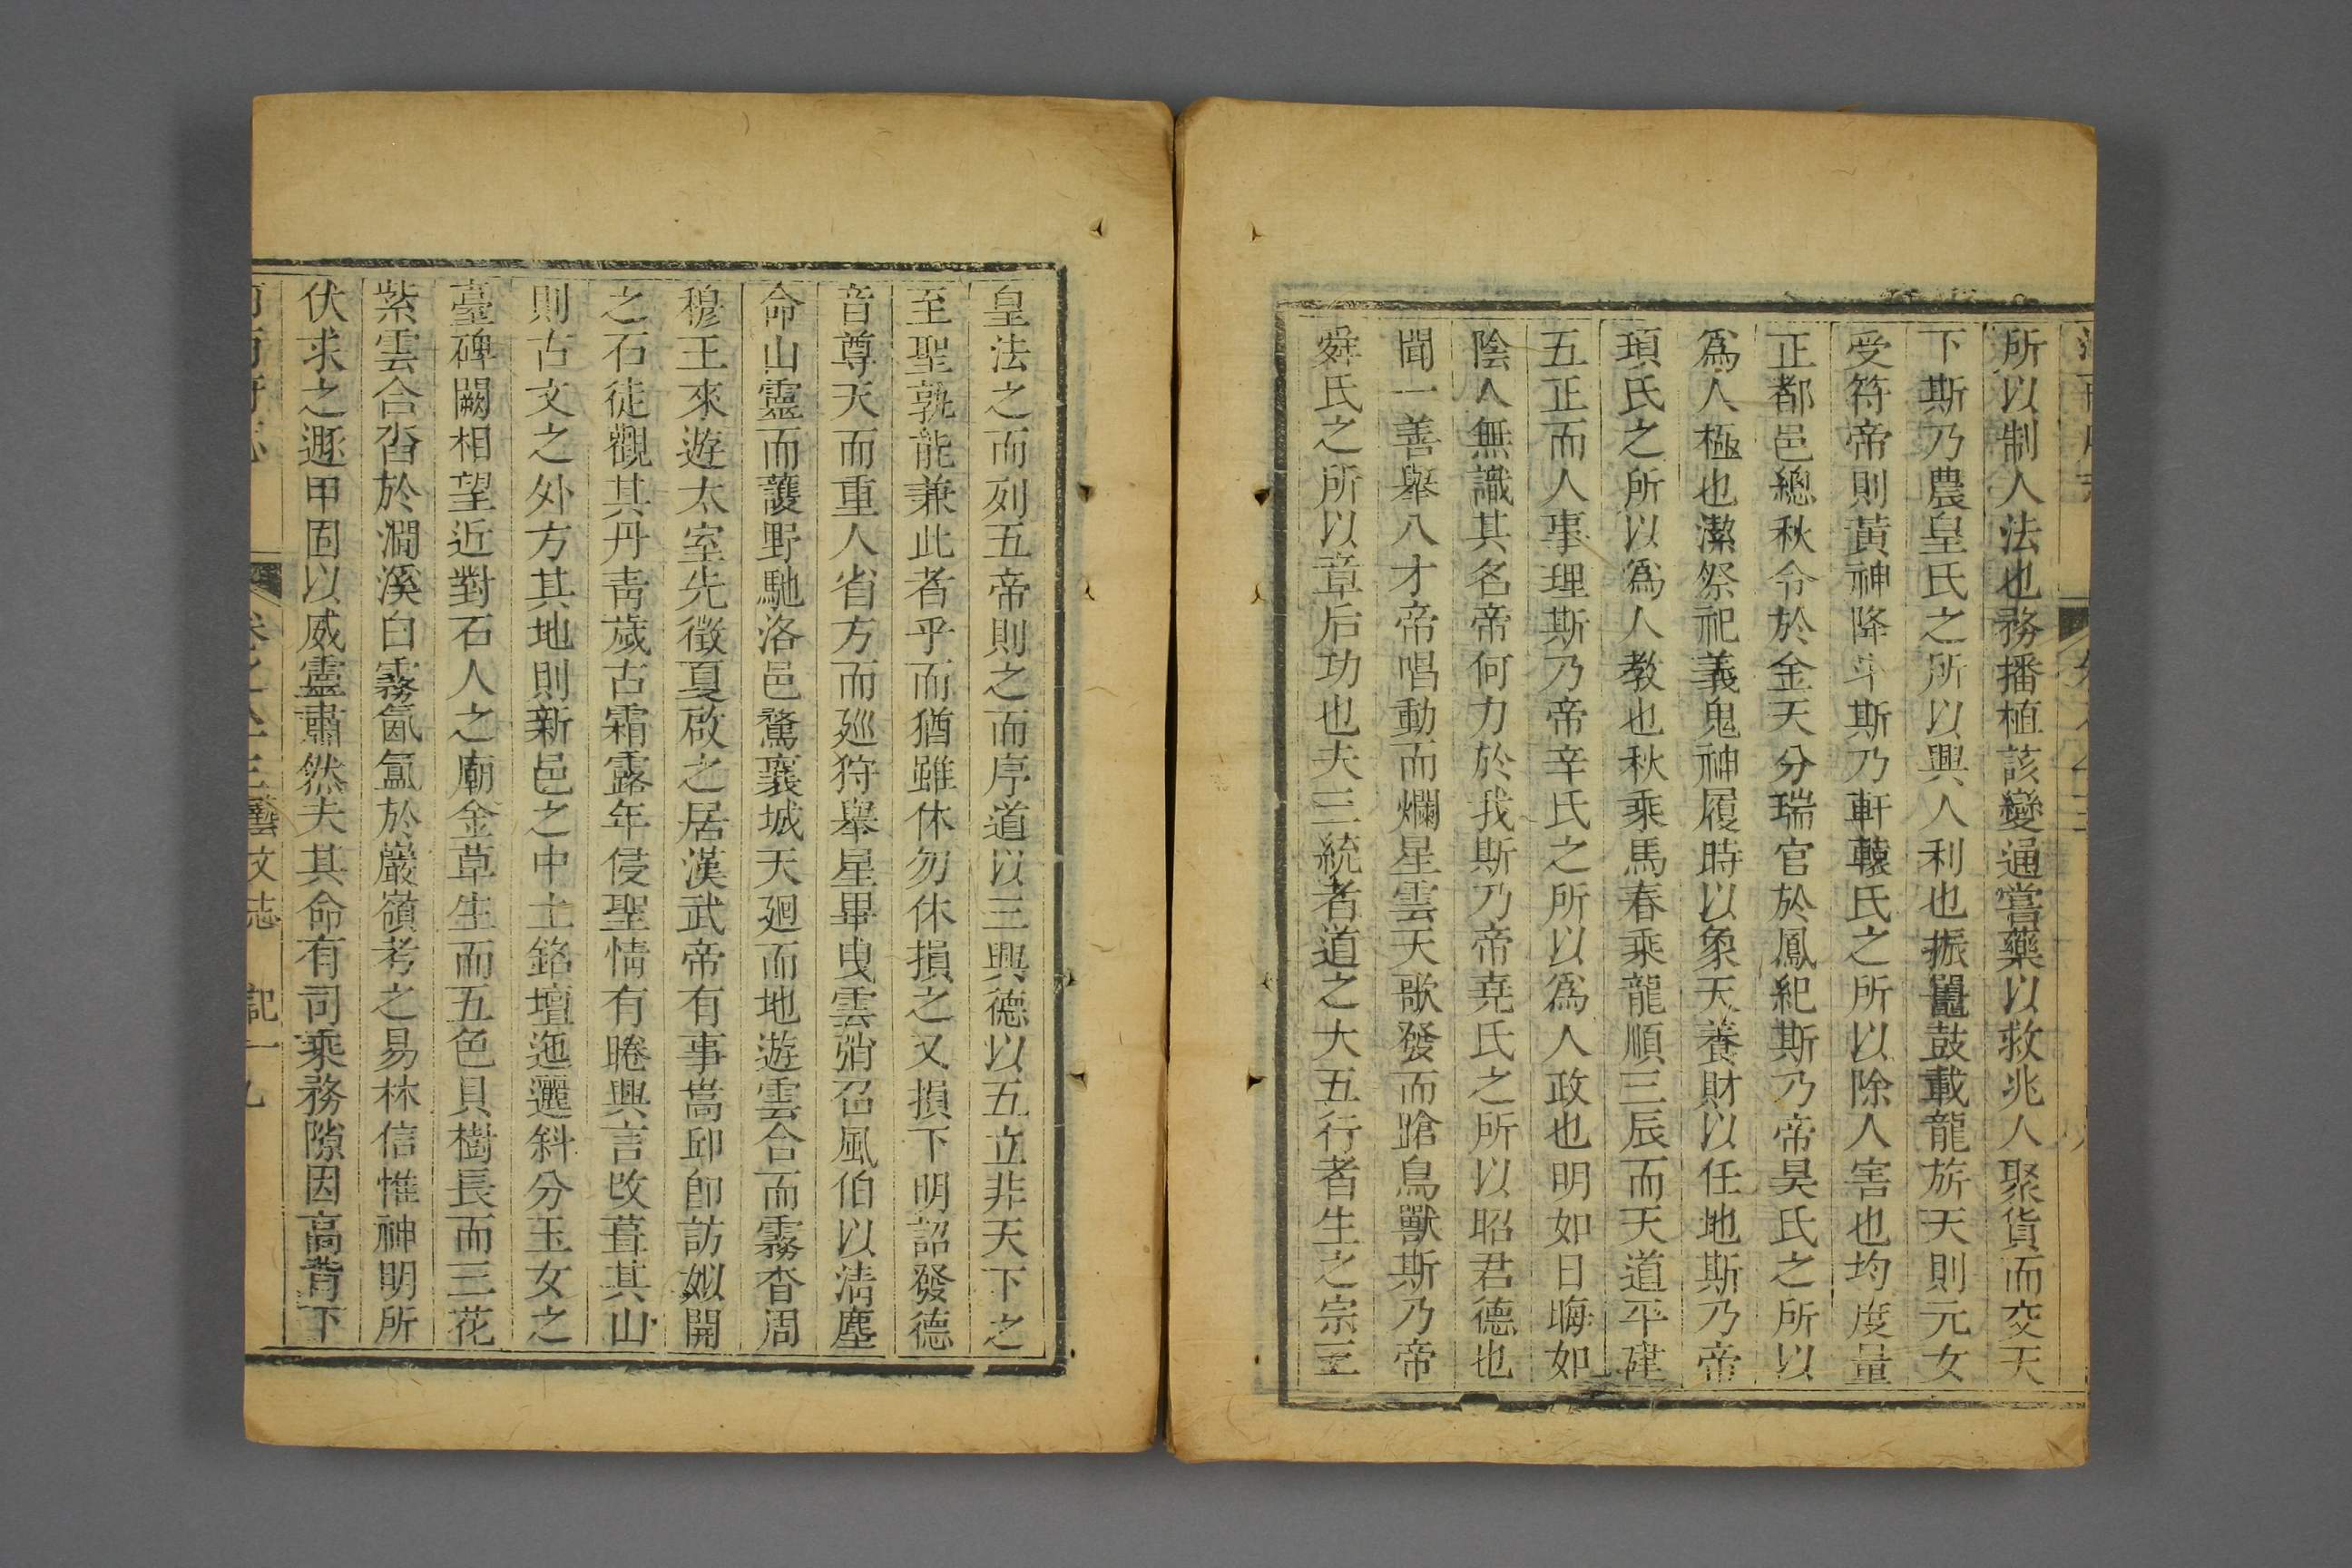 所以制人法也務播植該變通嘗藥以救兆人聚貨而交天
下斯乃農皇氏之所以興人利也振鼉鼓載龍旂天則元女
受符帝則黃神降斗斯乃軒轅氏之所以除人害也均度量
正都邑總秋令於金天分瑞官於鳳紀斯乃帝昊氏之所以
爲人極也潔祭祀義鬼神履時以象天養財以任地斯乃帝
頊氏之所以爲人教也秋乘馬春乘龍順三辰而天道平建
五正而人事理斯乃帝辛氏之所以爲人政也明如日晦如
陰人無識其名帝何力於我斯乃帝堯氏之所以昭君德也
聞一善舉八才帝唱動而爛星雲天歌發而蹌鳥獸斯乃帝
舜氏之所以章后功也夫三統者道之大五行者生之宗三
皇法之而列五帝則之而序道以三興德以五立非天下之
至聖孰能兼此者乎而猶雖休勿休損之又損下明詔發德
音尊天而重人省方而廵狩舉星畢曳雲弰召風伯以清塵
命山靈而護野馳洛邑騖襄城天廻而地遊雲合而霧杳周
穆王來遊太室先徵夏啟之居漢武帝有事嵩邱卽訪姒開
之石徒觀其丹靑歲古霜露年侵聖情有睠興言改葺其山
則古文之外方其地則新邑之中土銘壇迤邐斜分玉女之
臺碑闕相望近對石人之廟金草生而五色貝樹長而三花
紫雲合沓於澗溪白霧氤氳於巖嶺考之易林信惟神明所
伏求之遯甲固以威靈肅然夫其命有司乘務隙因高背下
卷之八十三藝文志 記一 九